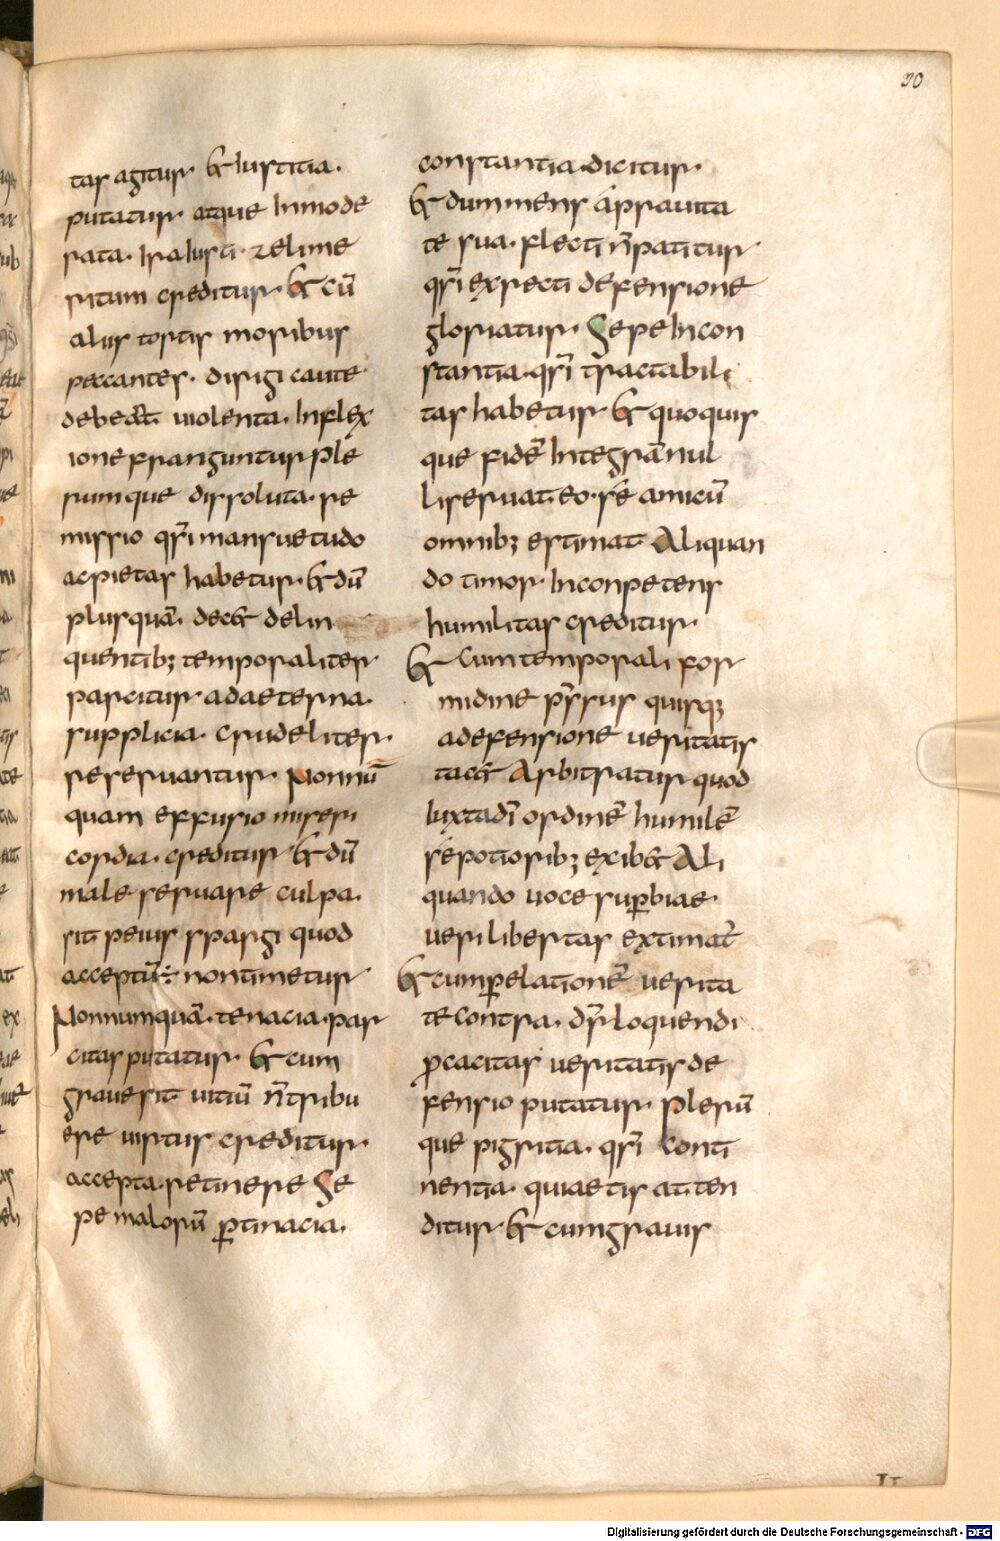 20
tas agitur & Iustitia.
putatur atque Inmode
rata. Ira Iusti. zeli me
ritum creditur & cū
alius tortis moribus
peccantes. dirigi caute
debeat violenta. Inflex
ione franguntur ple
rumque dissoluta. re
missio qsi mansuetudo
ac pietas habetur & dū
plusquā. dec& delin
quentib; temporaliter
parcitur ad aeterna.
supplicia. crudeliter.
reservantur Nonnū
quam effusio miseri
cordia. creditur & dū
male servare culpa.
sit peius spargi quod
acceptū÷ non timetur
Nonnumquā. tenacia. par
citas putatur. & cum
grave sit vitiū n̄ tribu
ere virtus creditur.
accepta. retinere Se
pe malorū ꝑtinacia.
constantia. dicitur.
& dum mens a pravita
te sua. flecti n̄ patitur
qsi ex recti defensione
gloriatur. Sepe Incon
stantia. qsi tractabili
tas habetur & quo quis
que fidē Integrā nul
li servat. eo. sē amicū
omnib; estimat Aliquan
do timor Inconpetens
humilitas creditur.
& Cum temporali for
midine p̄ssus quisq;
a defensione veritatis
tac& Arbitratur quod
Iuxta dī ordinē humilē
sē potiorib; exib& Ali
quando voce suꝑbiae.
veri libertas extimat̄
& cum ꝑ elationē verita
te contra. dr̄ loquendi
ꝓcacitas veritatis de
fensio putatur. Plerū
que pigritia. qsi Conti
nentia. quiaetis atten
ditur & cum gravis
II
Digitalisierung gefördert durch die Deutsche Forschungsgemeinschaft - DFG